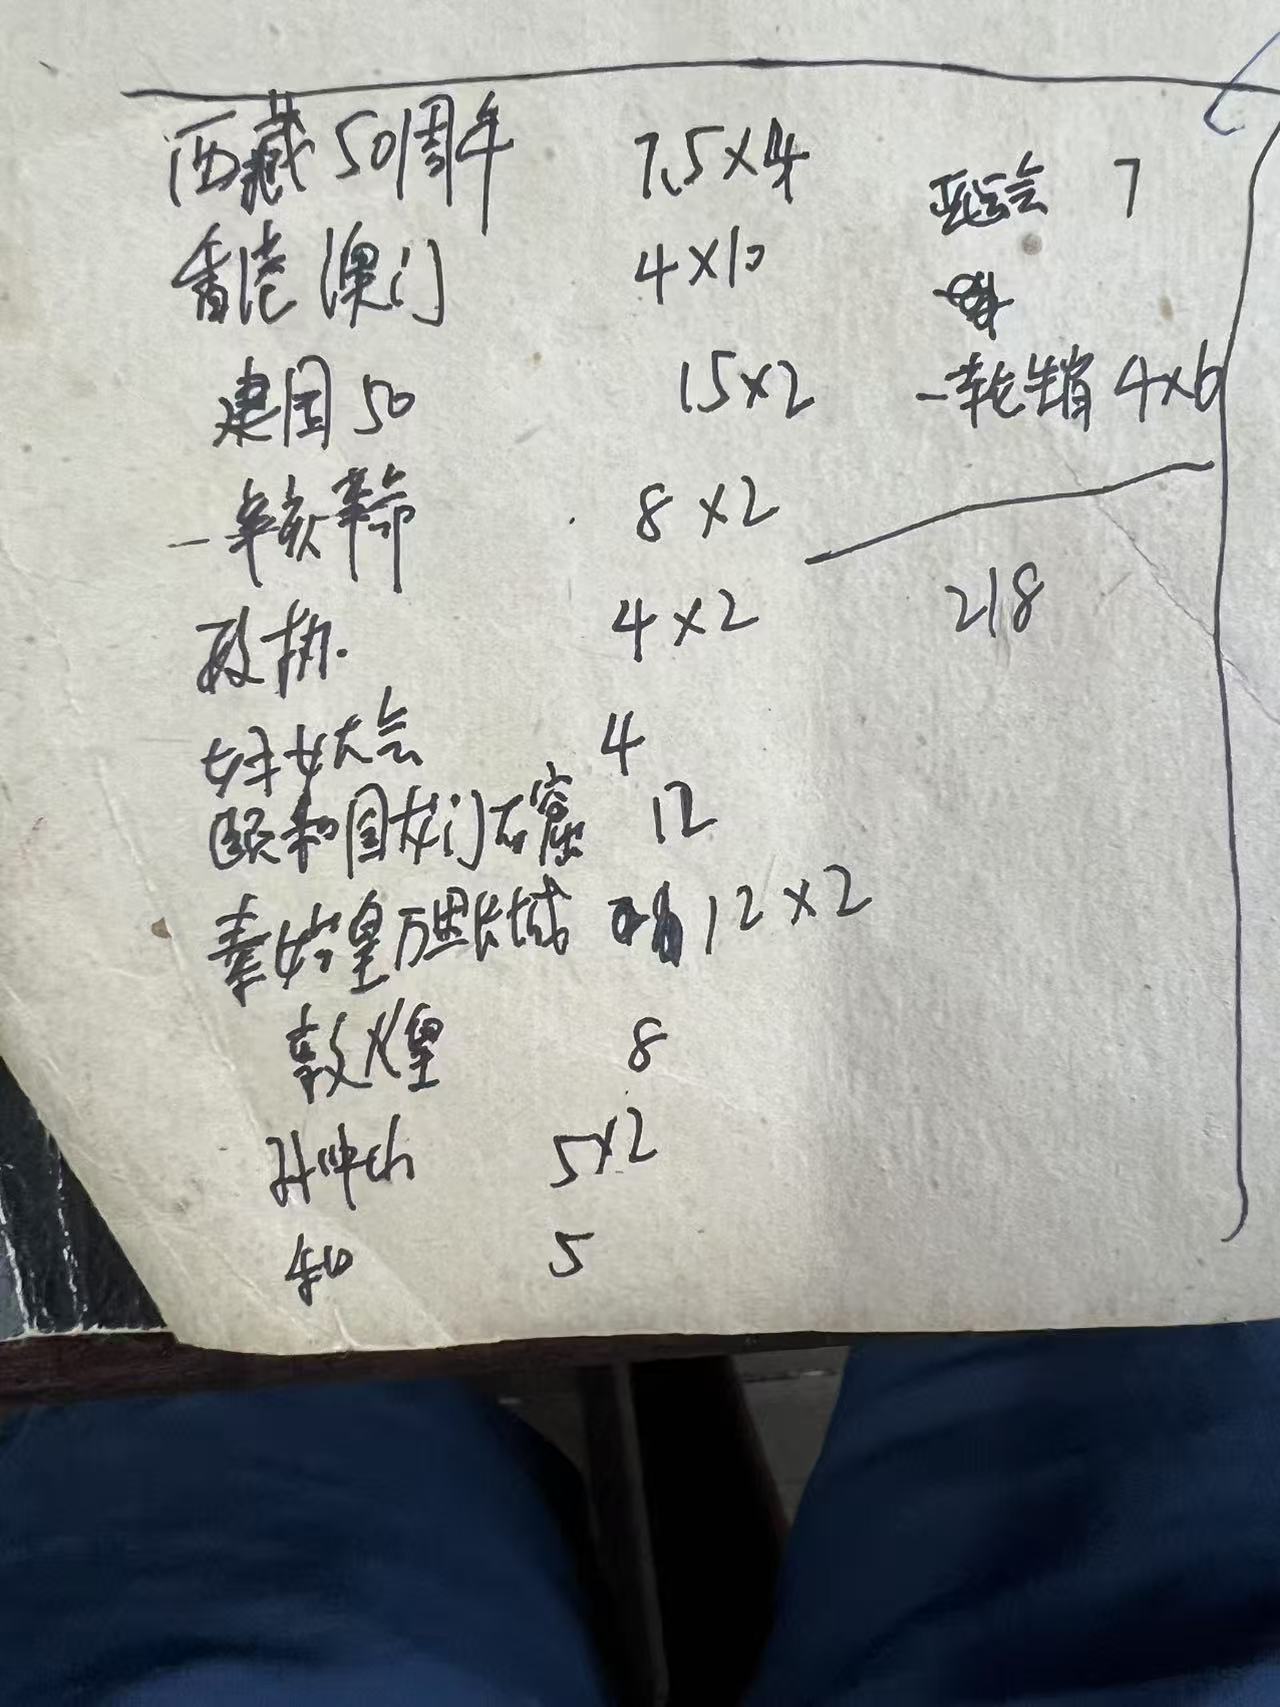 西藏50周年 7.5×4
香港 澳门 4×10
建国50 15×2
一辛亥革命 8×2
政协. 4×2
妇女大会 4
颐和园龙门石窟 12
秦始皇万里长城 12×2
敦煌 8
孙中山 5×2
和 5
亚运会 7
一轮生肖 4×6
218